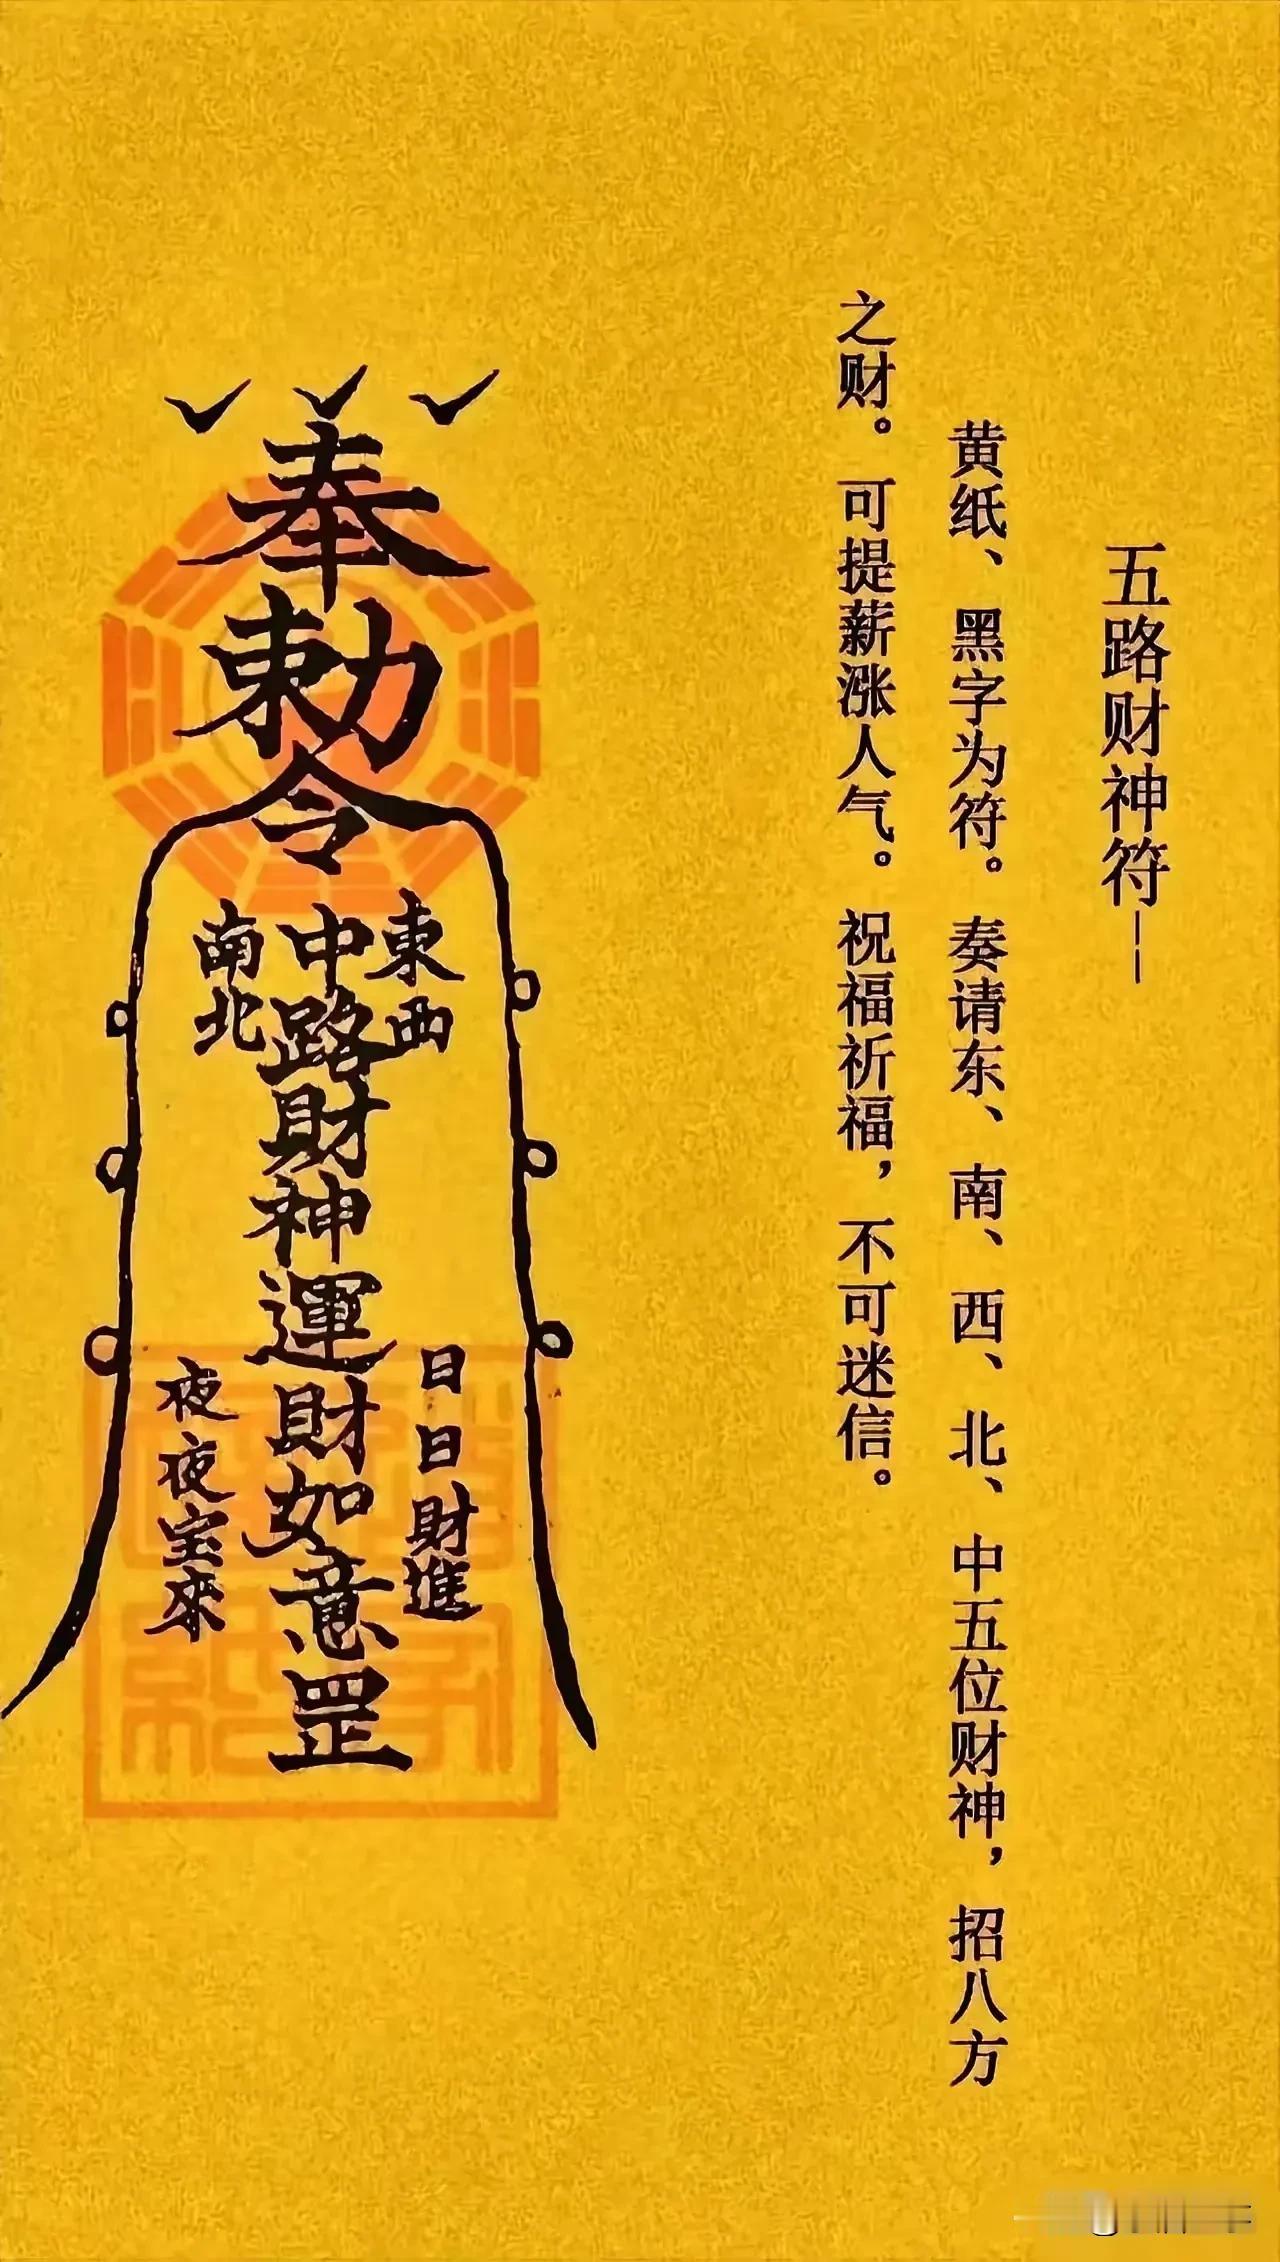 五路财神符——
黄纸、黑字为符。奏请东、南、西、北、中五位财神，招八方
之财。可提薪涨人气。祝福祈福，不可迷信。
奉
勅
令
東西
中路財神運財如意罡
南北
日日財進
夜夜宝來